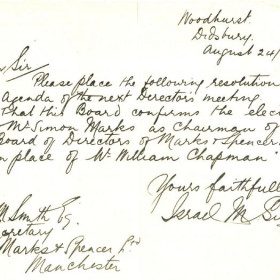 Woodhurst.
Didsbury.
August 24/
Sir
Please place the following resolution
Agenda of the next Directors meeting.
That this Board confirms the elec
Mr. Simon Marks as Chairman of
Board of Directors of Marks & Spencer
in place of Mr William Chapman
Yours faithfull
Israel M. S
M Smith Esq.
cretary
Marks & Spencer Ltd
Manchester